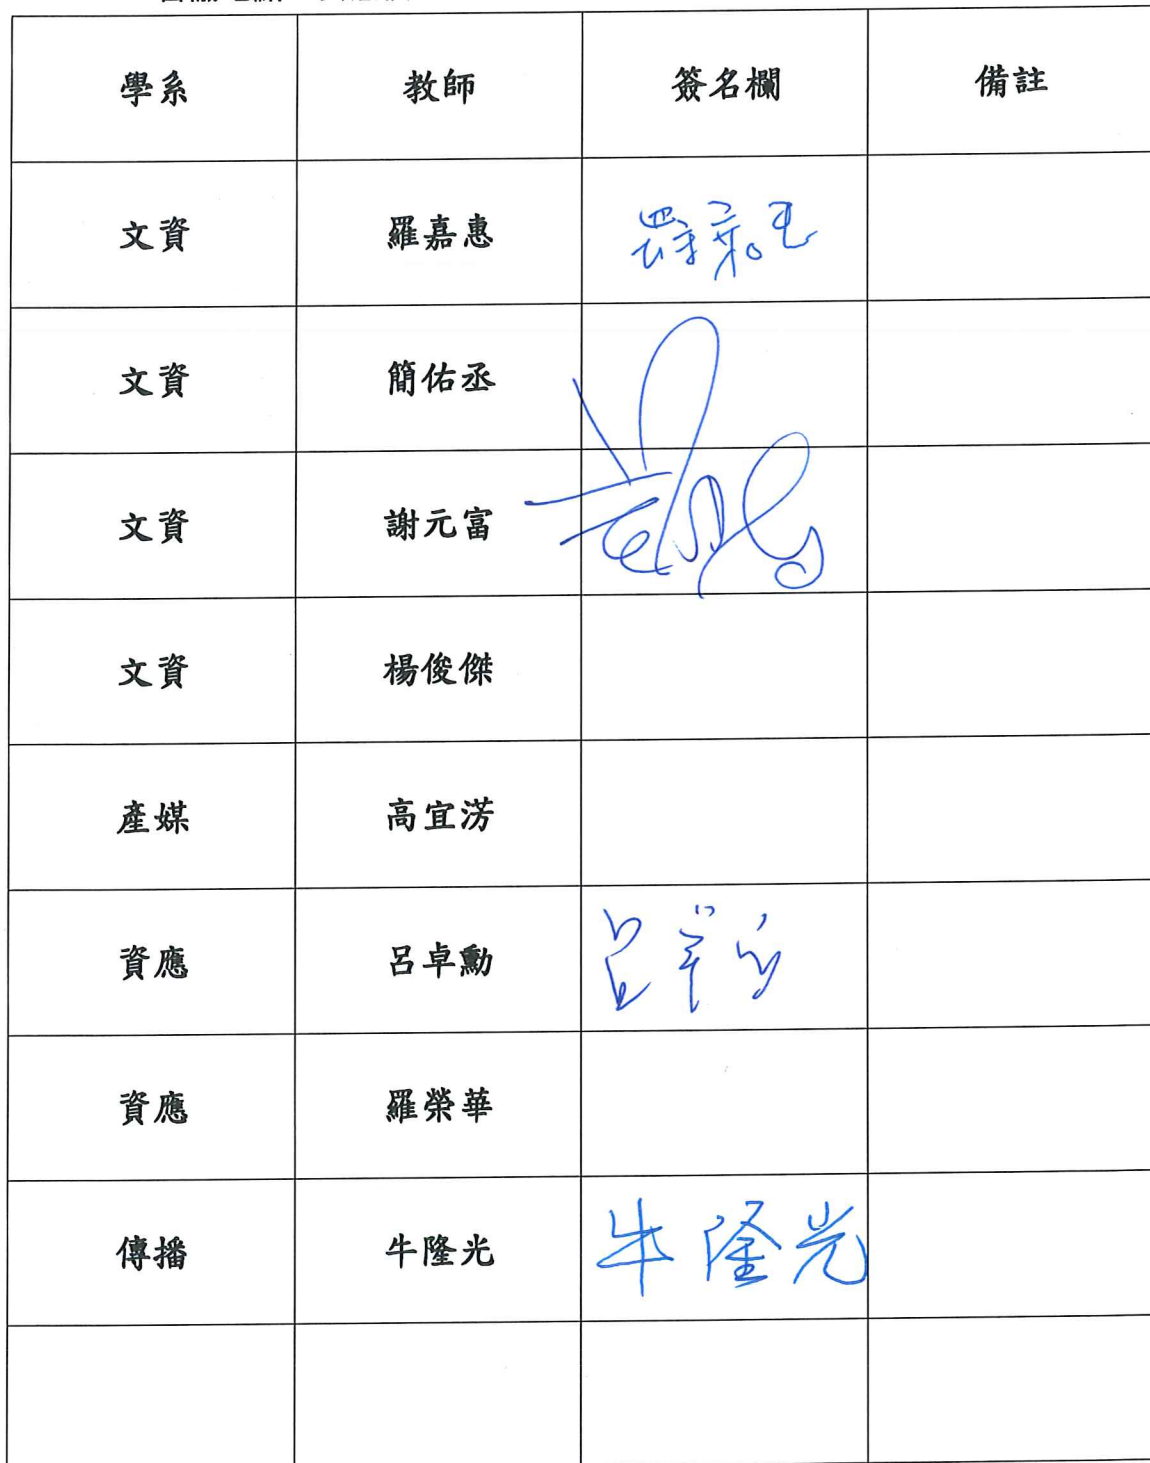 學系 教師 簽名欄 備註
文資 羅嘉惠 羅嘉惠
文資 簡佑丞
文資 謝元富
文資 楊俊傑
產媒 高宜淓
資應 呂卓勳 呂卓勳
資應 羅榮華
傳播 牛隆光 牛隆光